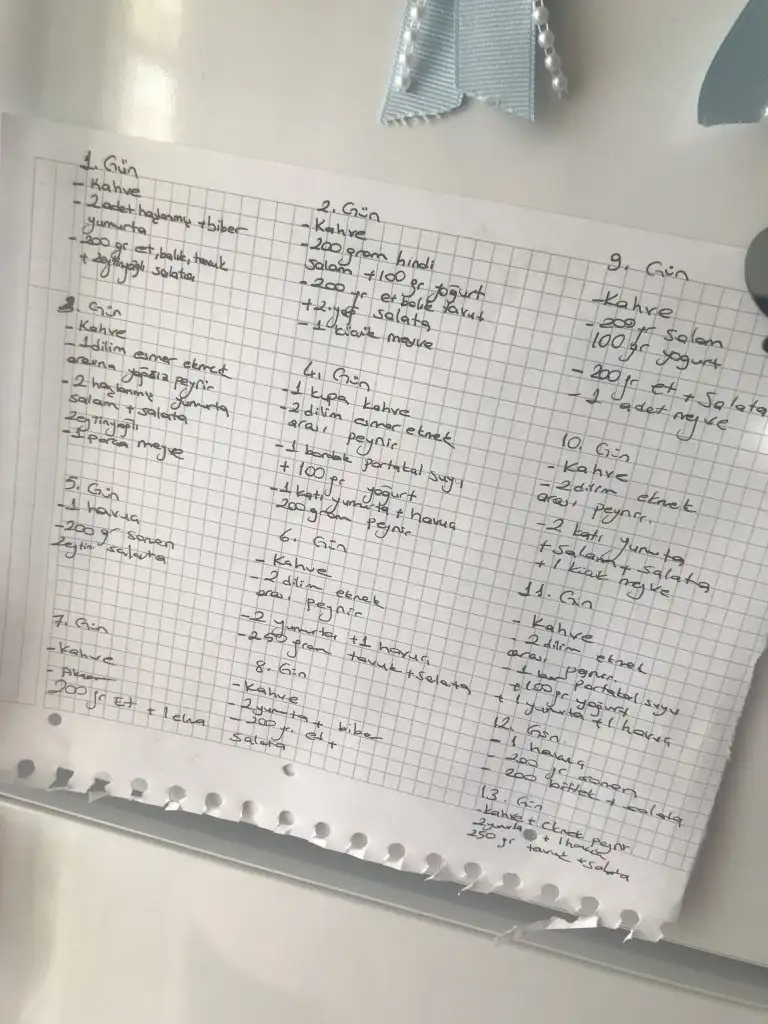 1. Gün
- Kahve
- 2 adet haşlanmış + biber
yumurta
- 200 gr et, balık, tavuk
+ zeytinyağlı salata
2. Gün
- Kahve
- 200 gram hindi
salam + 100 gr yoğurt
- 200 gr et balık tavuk
+ salata
- 1 küçük meyve
3. Gün
- Kahve
- 1 dilim esmer ekmek
arasına yağsız peynir
- 2 haşlanmış yumurta
salam + salata
zeytinyağlı
- 1 parça meyve
4. Gün
- 1 kupa kahve
- 2 dilim esmer ekmek
arası peynir
- 1 bardak portakal suyu
+ 100 gr yoğurt
- 1 katı yumurta + havuç
200 gram peynir
5. Gün
- 1 havuç
- 200 gr somon
zeytin salata
6. Gün
- Kahve
- 2 dilim ekmek
arası peynir
- 2 yumurta + 1 havuç
- 250 gram tavuk + salata
7. Gün
- Kahve
200 gr Et + 1 elma
8. Gün
- Kahve
- 2 yumurta + biber
- 200 gr. et +
salata
9. Gün
- Kahve
- 200 gr salam
100 gr yogurt
- 200 gr et + Salata
- 1 adet meyve
10. Gün
- Kahve
- 2 dilim ekmek
arası peynir.
- 2 katı yumurta
+ salam + salata
+ 1 meyve
11. Gün
- Kahve
- 2 dilim ekmek
arası peynir.
- 1 portakal suyu
+ 100 gr yoğurt
+ 1 yumurta + 1 havuç
12. Gün
- 1 havuç
- 200 gr somon
- 200 biftek + salata
13. Gün
- Kahve + Ekmek peynir
- 2 yumurta + 1 havuç
250 gr tavuk + salata